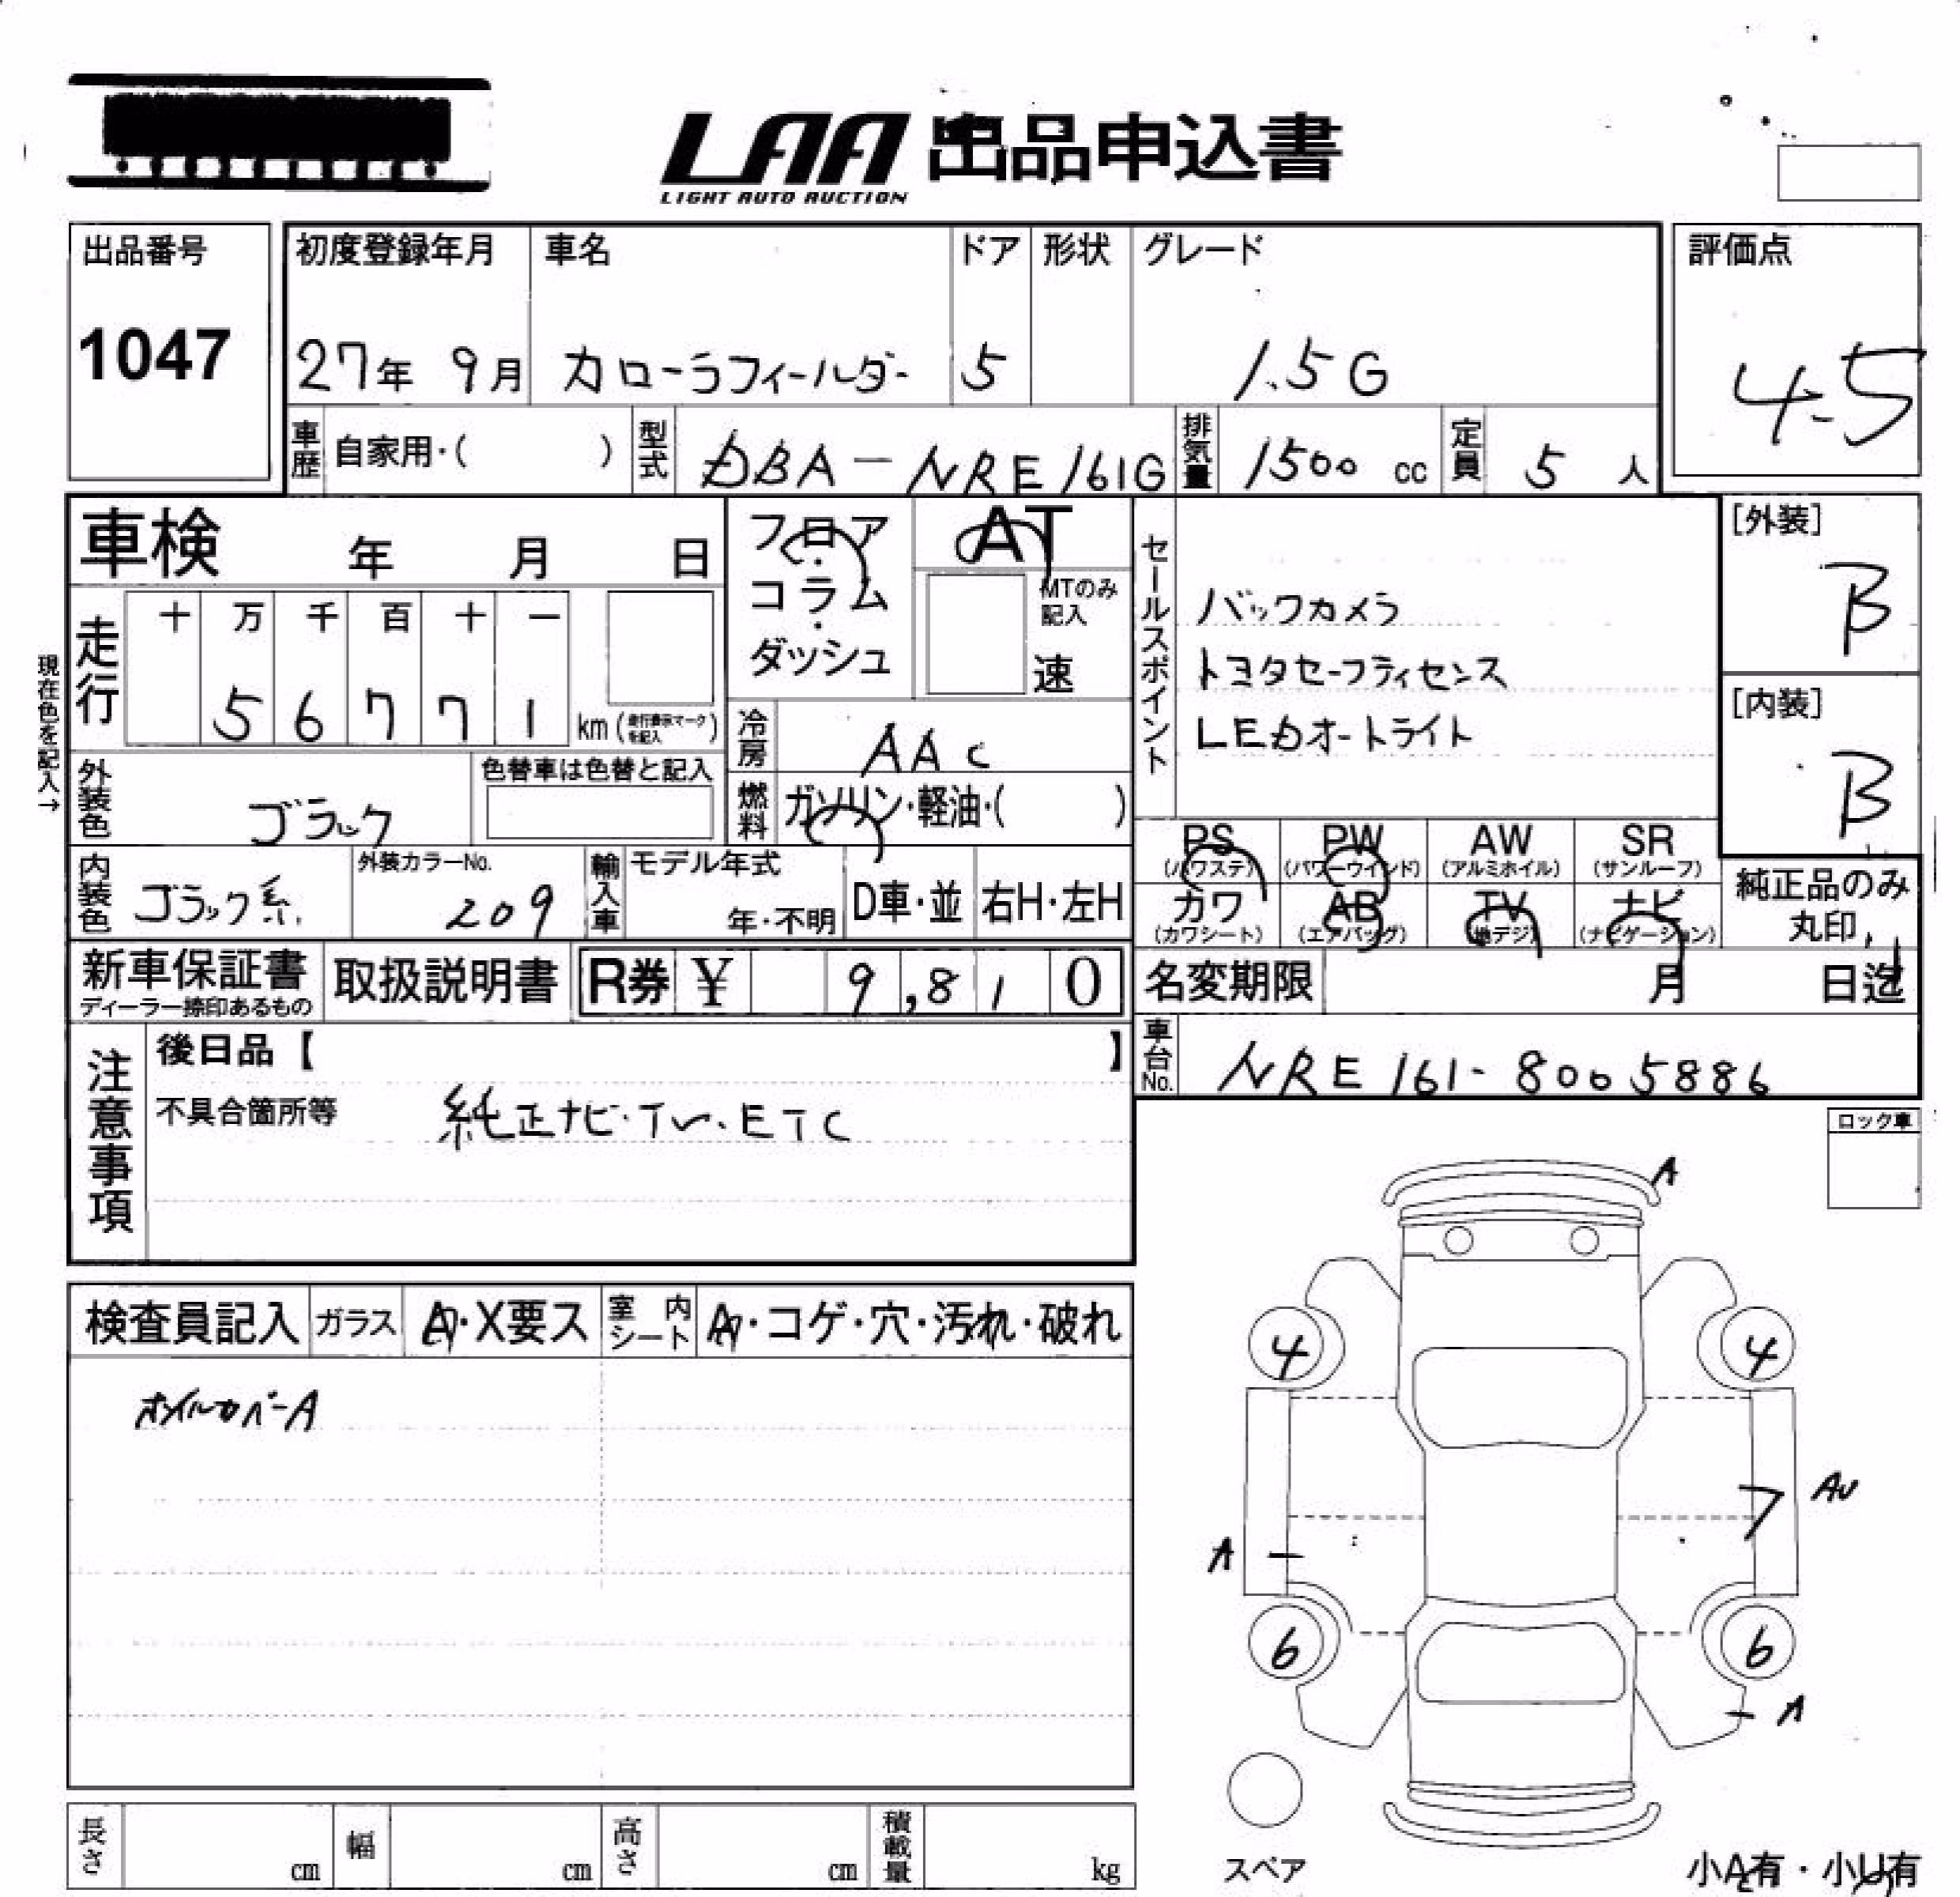 LAA 出品申込書
LIGHT AUTO AUCTION
出品番号 初度登録年月 車名 ドア 形状 グレード 評価点
1047 27年 9月 カローラフィールダー 5 1.5G 4.5
車歴 自家用・( ) 型式 DBA-NRE161G 排気量 1500 cc 定員 5 人
車検 年 月 日 フロア・コラム・ダッシュ AT
MTのみ記入 速
セールスポイント
バックカメラ
トヨタセーフティセンス
LEDオートライト
[外装]
B
[内装]
B
現在色を記入→
走行 十 万 千 百 十 一
5 6 7 7 1 km (走行表示マークを記入)
冷房 AAC
外装色 ブラック 色替車は色替と記入
燃料 ガソリン・軽油・( )
PS (パワステ) PW (パワーウインド) AW (アルミホイル) SR (サンルーフ)
カワ (カワシート) AB (エアバッグ) TV (地デジ) ナビ (ナビゲーション)
純正品のみ丸印
内装色 ブラック系 外装カラーNo. 209 輸入車 モデル年式 年・不明 D車・並 右H・左H
新車保証書 ディーラー捺印あるもの 取扱説明書 R券 ¥ 9,810 名変期限 月 日迄
車台No. NRE161-8005886
注意事項
後日品【 】
不具合箇所等 純正ナビ・TV・ETC
ロック車
検査員記入 ガラス A・X要ス 室内シート A・コゲ・穴・汚れ・破れ
ホイルカバーA
A
4 4
AU
A
6 6
A
スペア
小A有・小U有
長さ cm 幅 cm 高さ cm 積載量 kg